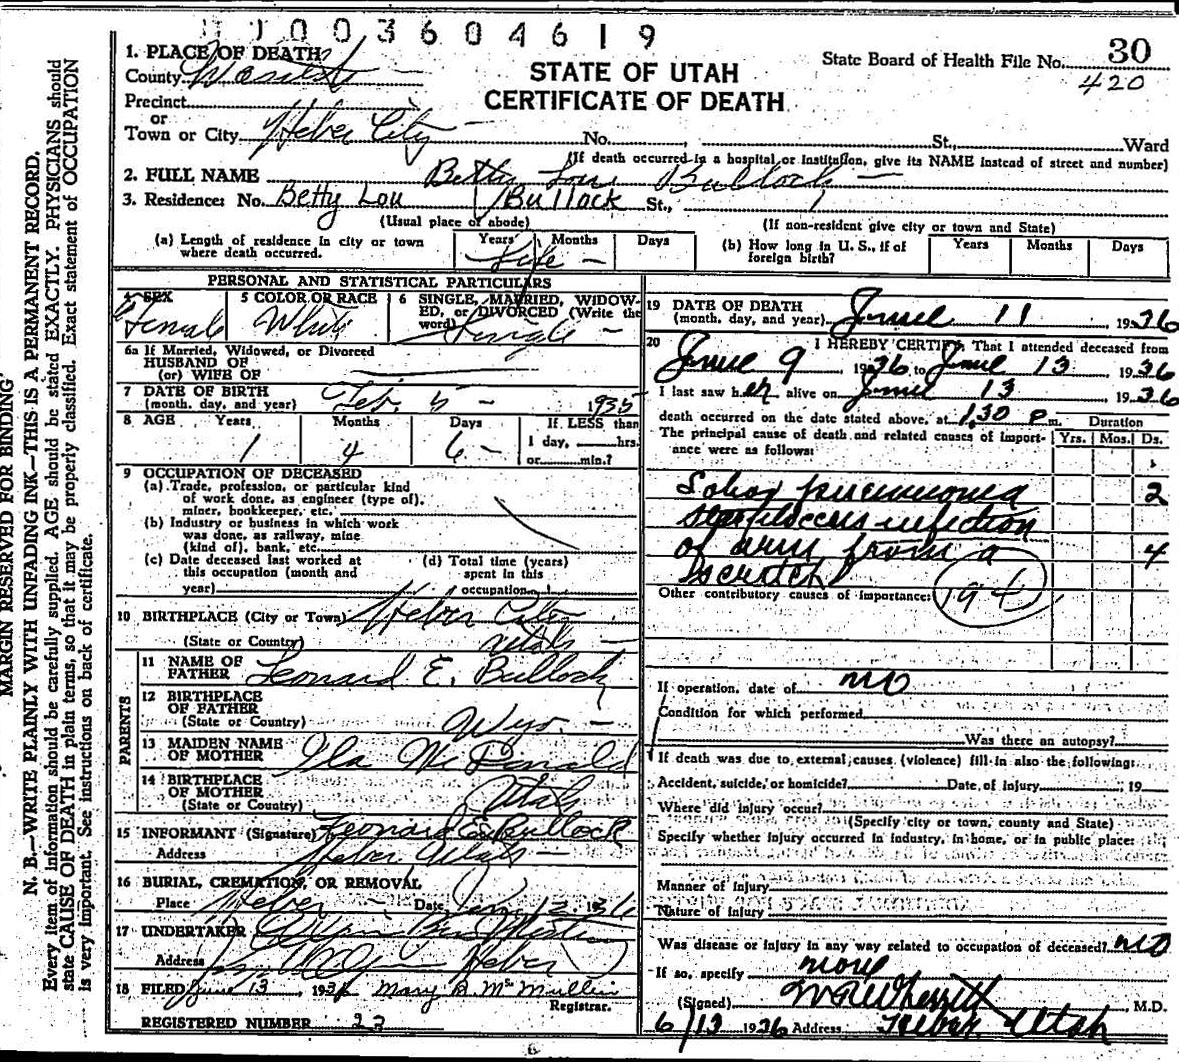 1003604619
1. PLACE OF DEATH
County Wasatch
STATE OF UTAH
CERTIFICATE OF DEATH
State Board of Health File No. 30
420
Precinct
or
Town or City Heber City No. St., Ward
(If death occurred in a hospital or institution, give its NAME instead of street and number)
2. FULL NAME Betty Lou Bullock
3. Residence: No. Betty Lou Bullock St.,
(Usual place of abode) (If non-resident give city or town and State)
(a) Length of residence in city or town where death occurred. Years Months Days Life
(b) How long in U. S., if of foreign birth? Years Months Days
PERSONAL AND STATISTICAL PARTICULARS
4 SEX Female
5 COLOR OR RACE White
6 SINGLE, MARRIED, WIDOWED, or DIVORCED (Write the word) Single
6a If Married, Widowed, or Divorced
HUSBAND OF
(or) WIFE OF
7 DATE OF BIRTH
(month, day, and year) Feb. 5 - 1935
8 AGE Years Months Days If LESS than
1 4 6 1 day, hrs.
or min.?
9 OCCUPATION OF DECEASED
(a) Trade, profession, or particular kind
of work done, as engineer (type of),
miner, bookkeeper, etc.
(b) Industry or business in which work
was done, as railway, mine
(kind of), bank, etc.
(c) Date deceased last worked at
this occupation (month and
year)
(d) Total time (years)
spent in this
occupation
10 BIRTHPLACE (City or Town) Heber City
(State or Country) Utah
PARENTS
11 NAME OF
FATHER Leonard E. Bullock
12 BIRTHPLACE
OF FATHER
(State or Country) Wyo.
13 MAIDEN NAME
OF MOTHER Ila McDonald
14 BIRTHPLACE
OF MOTHER
(State or Country) Utah
15 INFORMANT (Signature) Leonard E. Bullock
Address Heber Utah
16 BURIAL, CREMATION, OR REMOVAL
Place Heber Date 12 1936
17 UNDERTAKER
Address Heber
18 FILED June 13, 1936 Mary B. McMullin
Registrar.
REGISTERED NUMBER 23
19 DATE OF DEATH
(month, day, and year) June 11, 1936
20 I HEREBY CERTIFY, That I attended deceased from
June 9 1936 to June 13 1936
I last saw her alive on June 13 1936
death occurred on the date stated above, at 1,30 P.m. Duration
The principal cause of death and related causes of importance were as follows: Yrs. Mos. Ds.
Lobar pneumonia 2
infection
of arm from a 4
scratch
Other contributory causes of importance: 194
If operation, date of no
Condition for which performed
Was there an autopsy?
If death was due to external causes (violence) fill in also the following:
Accident, suicide, or homicide? Date of injury , 19
Where did injury occur?
(Specify city or town, county and State)
Specify whether injury occurred in industry, in home, or in public place:
Manner of Injury
Nature of Injury
Was disease or injury in any way related to occupation of deceased? no
If so, specify none
(Signed) M.D.
6/13 1936 Address Heber Utah
MARGIN RESERVED FOR BINDING
N. B.—WRITE PLAINLY WITH UNFADING INK—THIS IS A PERMANENT RECORD.
Every item of information should be carefully supplied. AGE should be stated EXACTLY. PHYSICIANS should
state CAUSE OF DEATH in plain terms, so that it may be properly classified. Exact statement of OCCUPATION
is very important. See instructions on back of certificate.